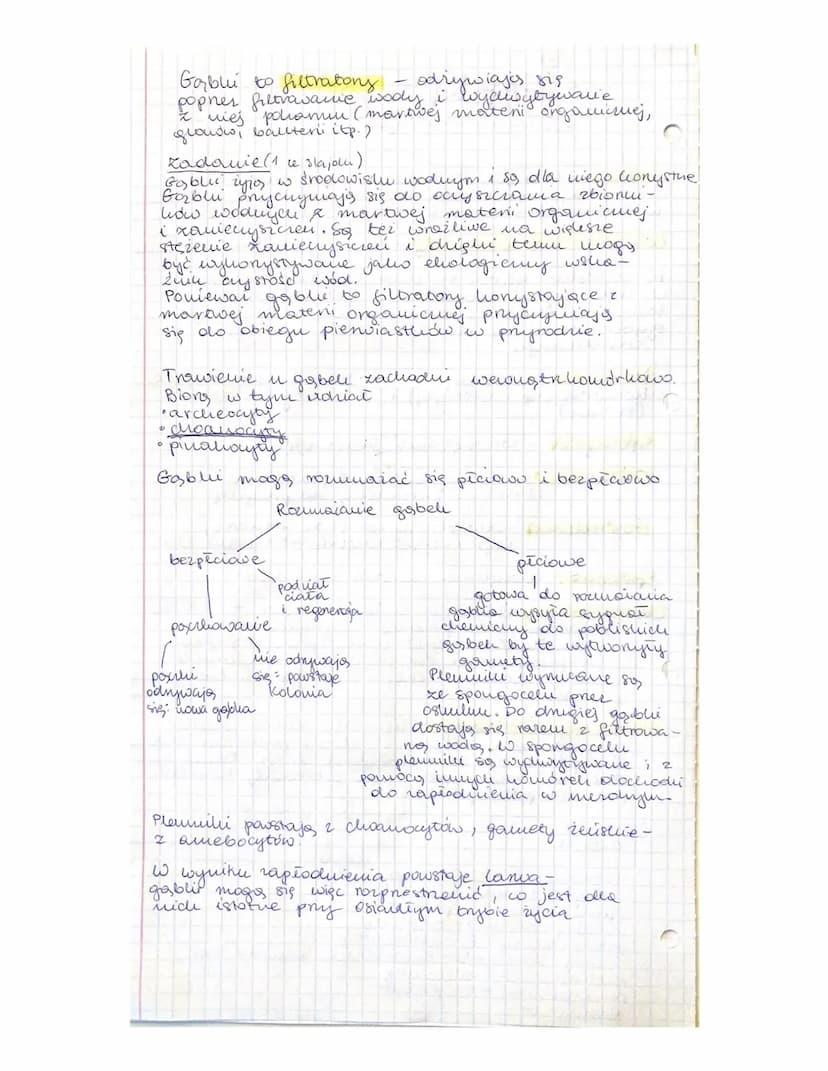 Gąbki to filtratory - odżywiają się
poprzez filtrowanie wody i wychwytywanie
z niej pokarmu (martwej materii organicznej,
glonów, bakterii itp.)
zadanie (1 ze slajdu)
Gąbki żyją w środowisku wodnym i są dla niego korzystne
Gąbki przyczyniają się do oczyszczania zbiorni-
ków wodnych z martwej materii organicznej
i zanieczyszczeń. Są też wrażliwe na większe
stężenie zanieczyszczeń i dzięki temu mogą
być wykorzystywane jako ekologiczny wska-
źnik czystości wód.
Ponieważ gąbki to filtratory korzystające z
martwej materii organicznej przyczyniają
się do obiegu pierwiastków w przyrodzie.
Trawienie u gąbek zachodzi wewnątrzkomórkowo.
Biorą w tym udział
• archeocyty
• choanocyty
• pinakocyty
Gąbki mogą rozmnażać się płciowo i bezpłciowo
Rozmnażanie gąbek
bezpłciowe
podział
ciała
i regeneracja
pączkowanie
pączki
odrywają
się: nowa gąbka
nie odrywają
się: powstaje
kolonia
płciowe
gotowa do rozmnażania
gąbka wysyła sygnał
chemiczny do pobliskich
gąbek by te wytworzyły
gamety.
Plemniki wyrzucane są
ze spongocelu przez
oskulum. Do drugiej gąbki
dostają się razem z filtrowa-
ną wodą. W spongocelu
plemniki są wychwytywane i z
pomocą innych komórek dochodzi
do zapłodnienia w mezohylu.
Plemniki powstają z choanocytów, gamety żeńskie -
z amebocytów.
W wyniku zapłodnienia powstaje larwa -
gąbki mogą się więc rozprzestrzenić, co jest dla
nich istotne przy osiadłym trybie życia